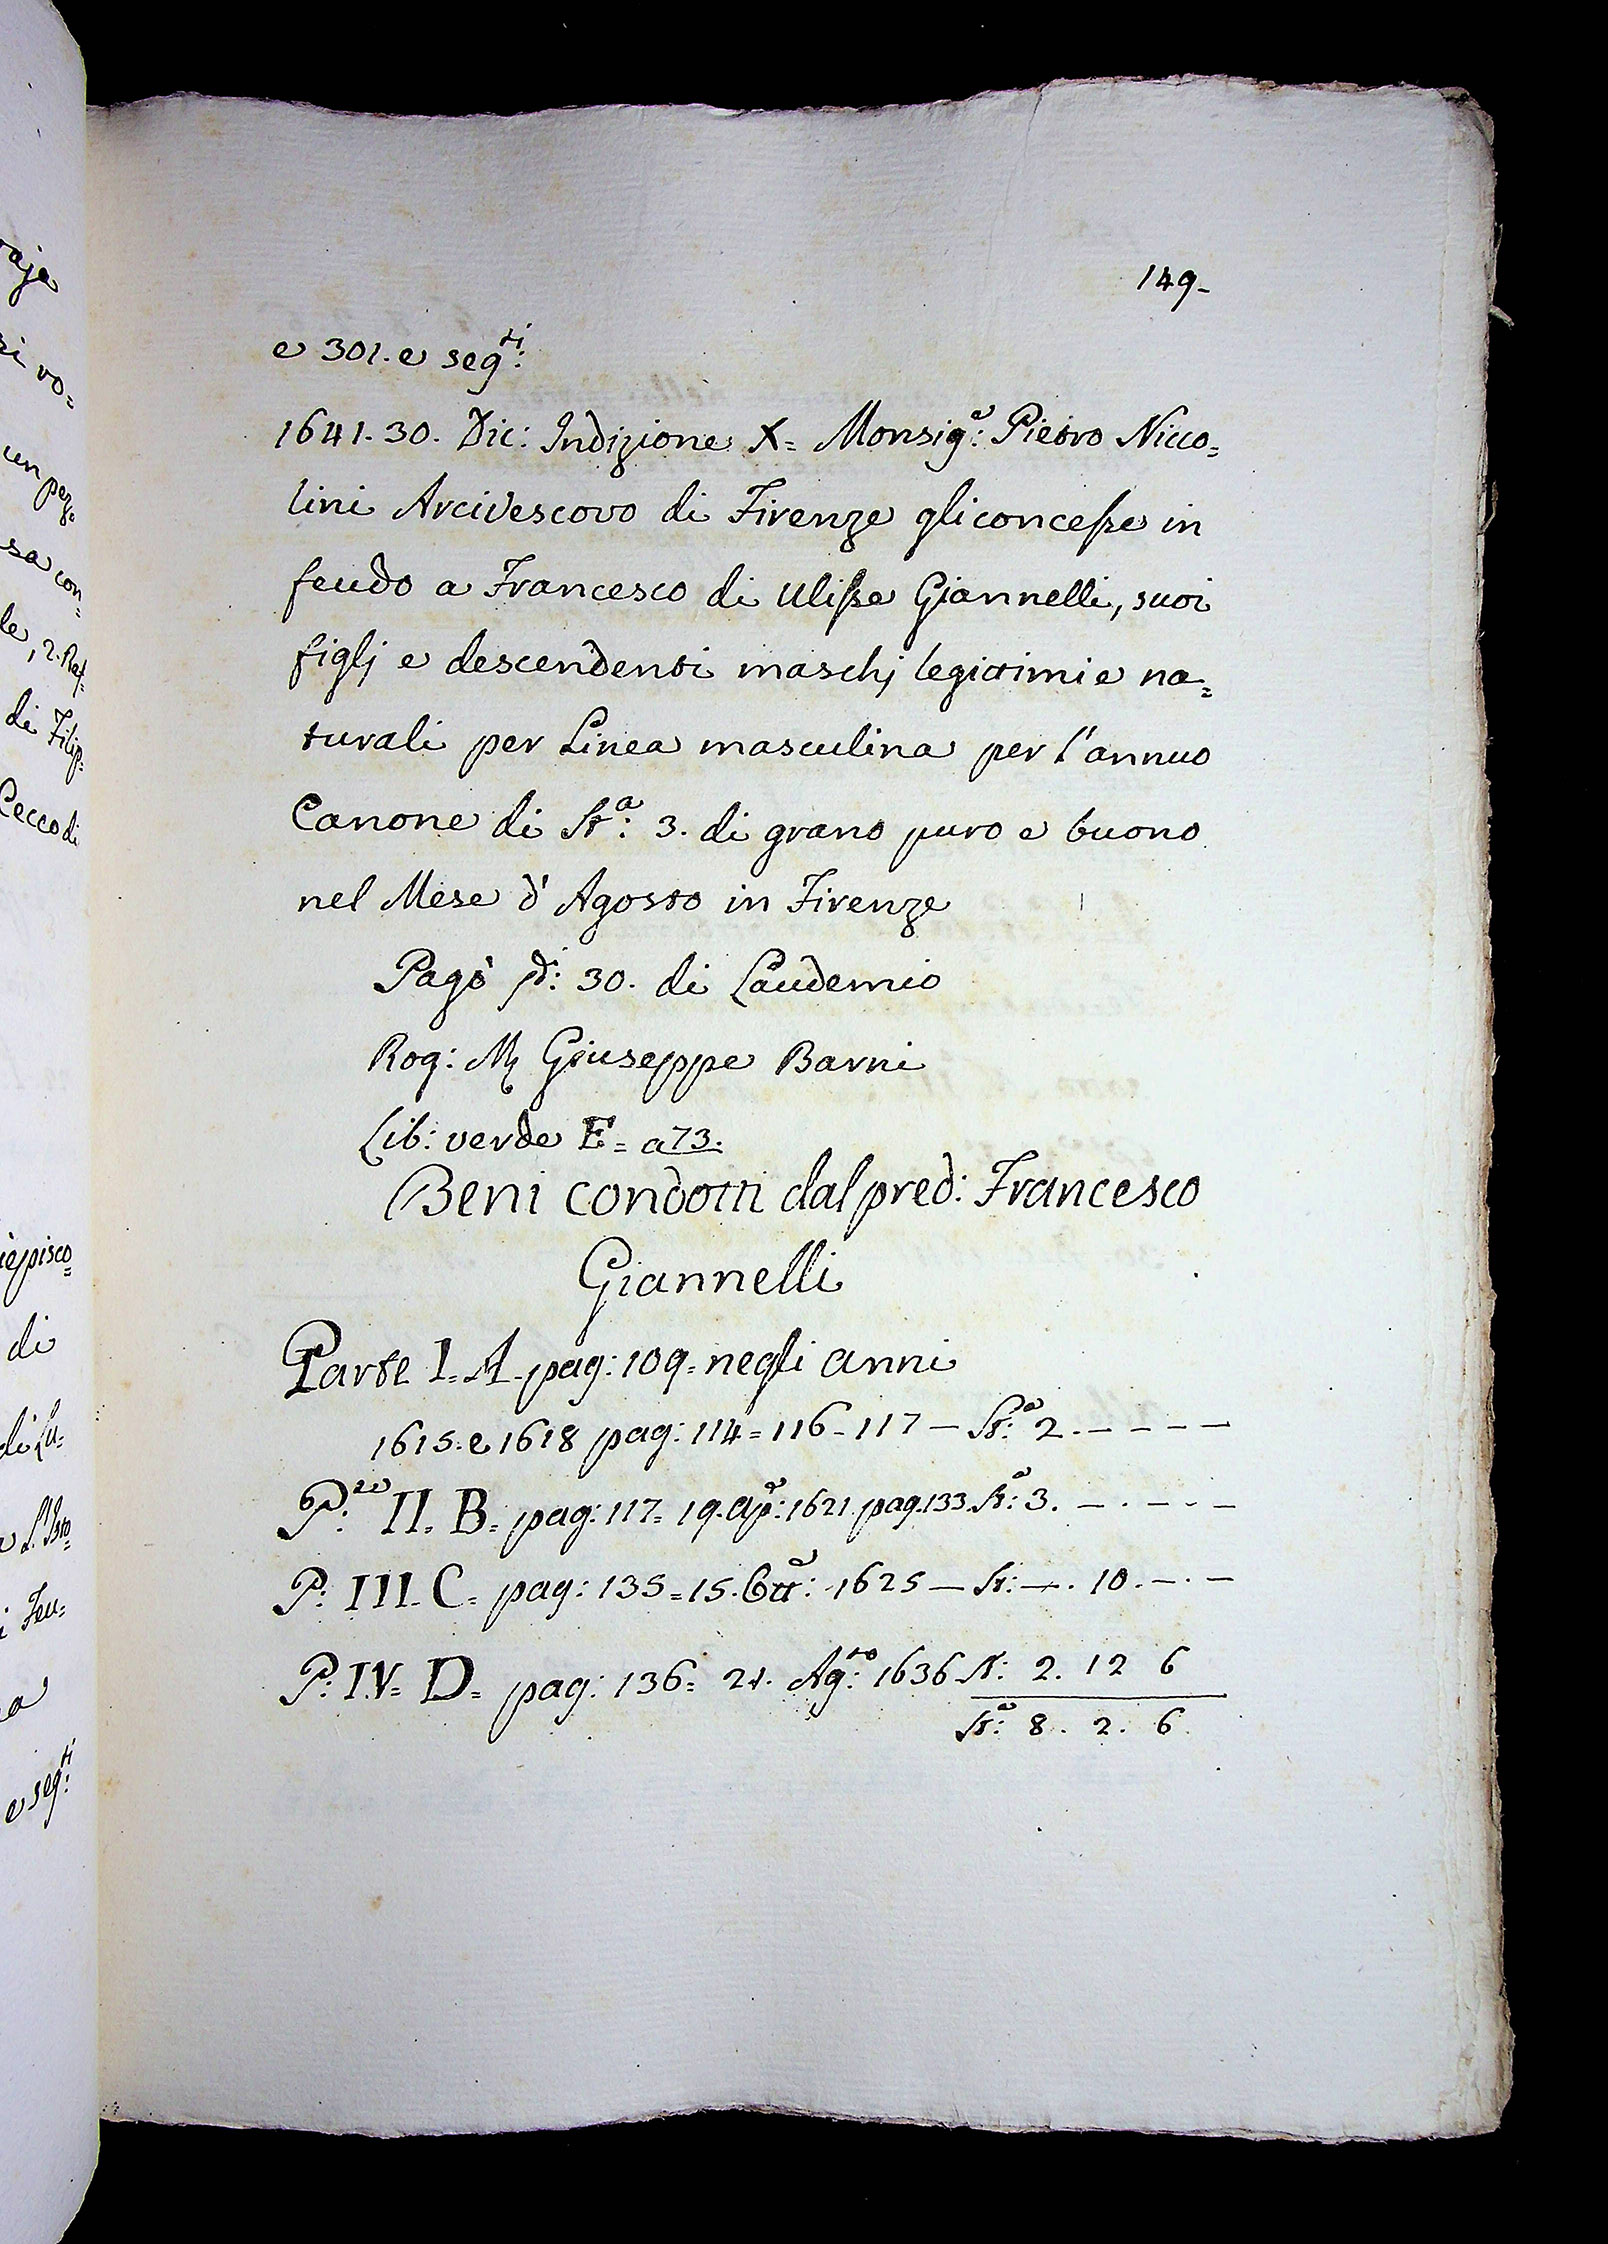 raja
zi vo=
un pez=
sa con=
le, 2. Raf=
di Filip=
Cecco di
iepisco=
di
di Lu=
i Feu=
e seg:ti
149-
e 301. e seg:ti
1641. 30. Dic: Indizione X= Monsig:e Pietro Nicco=
lini Arcivescovo di Firenze gli concesse in
feudo a Francesco di Ulisse Giannelli, suoi
figlj e descendenti maschj legittimi e na=
turali per Linea masculina per l'annuo
Canone di St:a 3. di grano puro e buono
nel Mese d'Agosto in Firenze
Pagò di: 30. di Laudemio
Rog: Mr Giuseppe Barni
Lib: verde E= a 73.
Beni condotti dal pred: Francesco
Giannelli
Parte I= A- pag: 109= negli anni
1615: e 1618 pag: 114= 116- 117 — St:a 2. — — — —
P:te II= B= pag: 117= 19. Ap:e: 1621. pag. 133. St:a 3. — . — . —
P: III. C= pag: 135= 15. Ott:e: 1625 — St: —. 10. — . —
P: IV= D= pag: 136= 21. Ag:to 1636 St: 2. 12 6
St:a 8. 2. 6.